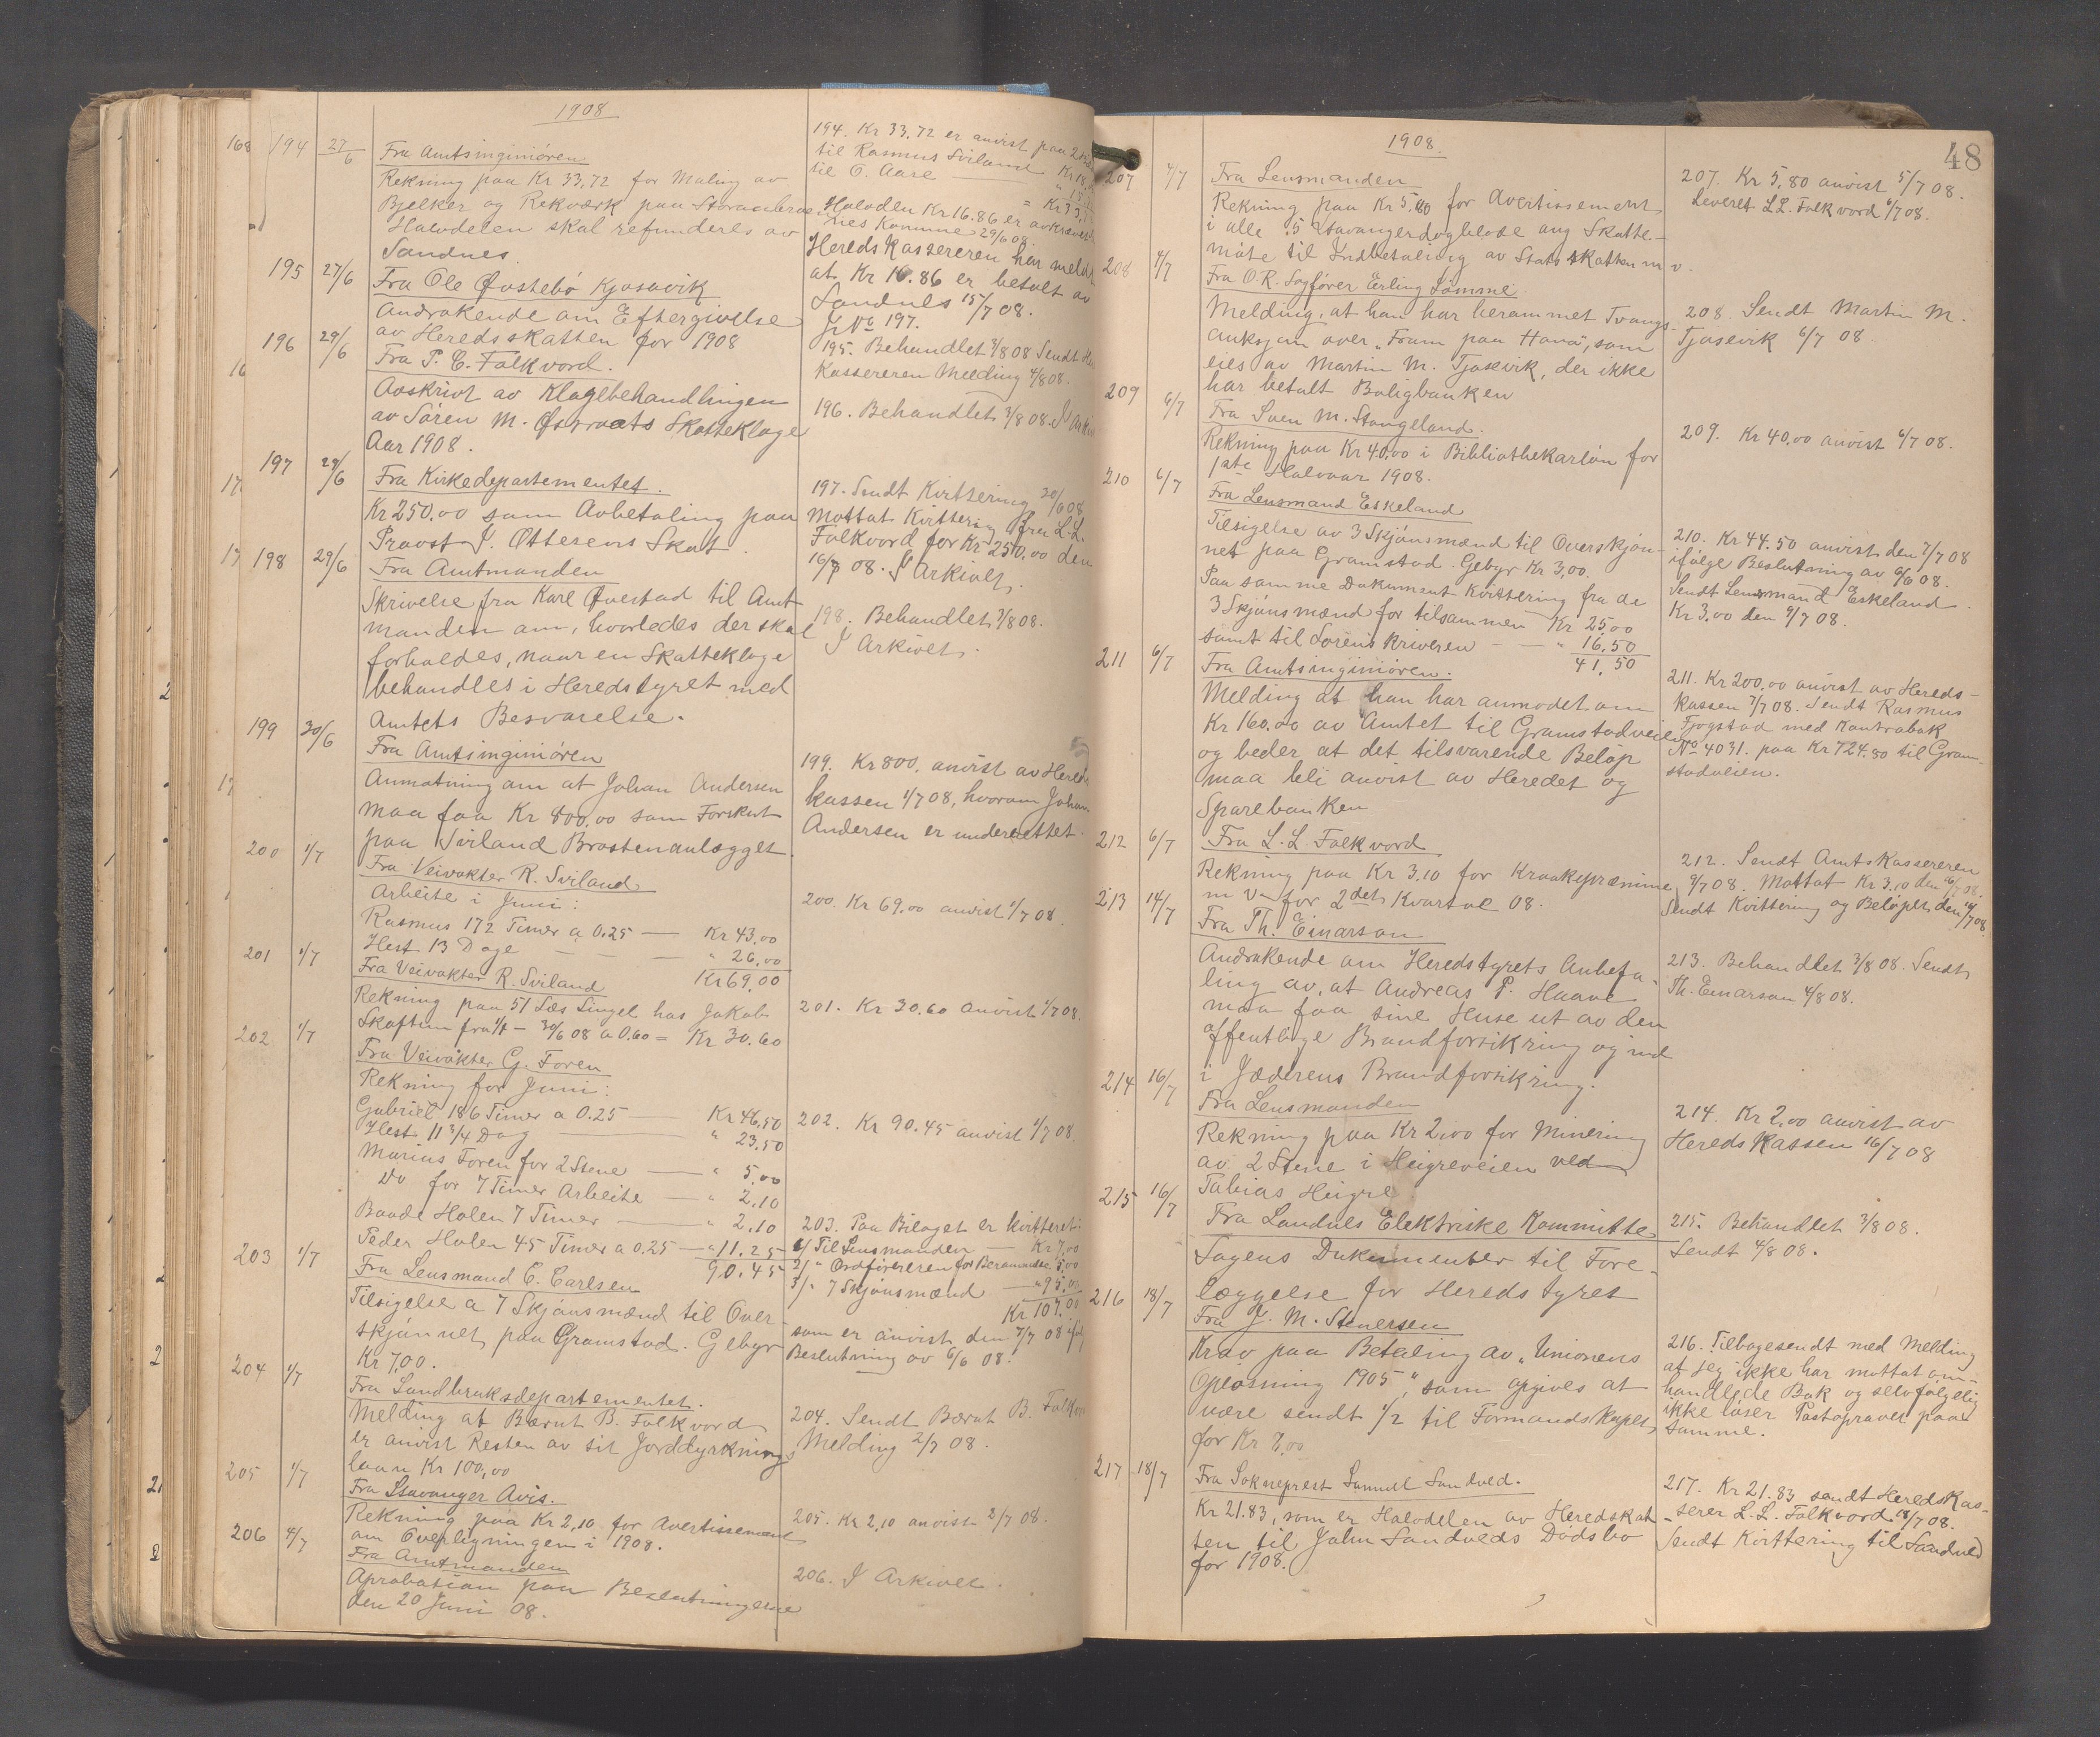 1908
194 27/6 Fra Amtsinginiören
Rekning paa Kr 33,72 for Maling av
Bjelker og Rekværk paa
Halvdelen skal refunderes av
Sandnes
195 27/6 Fra Ole Østebö Kjosavik
Andrakende om Eftergivelse
av Heredsskatten for 1908
196 29/6 Fra P. C. Falkvord.
Avskrivt av Klagebehandlingen
av Sören M. Østraats Skatteklage
Aar 1908.
197 29/6 Fra Kirkedepartementet.
Kr 250.00 som Avbetaling paa
Provst J. Ottesens Skat.
198 29/6 Fra Amtmanden
Skrivelse fra Karl Øvestad til Amt-
manden om, hvorledes der skal
forholdes, naar en Skatteklage
behandles i Heredstyret med
Amtets Besvarelse.
199 30/6 Fra Amtsinginiören
Anmotning om at Johan Andersen
maa faa Kr 800,00 som Forskut
paa Sviland Brostenanlægget.
200 1/7 Fra Veivokter R. Sviland
Arbeite i Juni:
Rasmus 172 Timer a 0.25 — Kr 43,00
Hest 13 Dage — — — " 26,00
Kr 69,00
201 1/7 Fra Veivokter R. Sviland
Rekning paa 51 Læs Singel hos Jakob
Skaftun fra 1/1 - 30/6 08 a 0.60 = Kr 30.60
202 1/7 Fra Veivokter G. Foren
Rekning for Juni:
Gabriel 186 Timer a 0.25 — Kr 46,50
Hest 11 3/4 Dag — " 23,50
Marius Foren for 2 Stene — " 5,00
Do for 7 Timer Arbeite — " 2,10
Baade Holen 7 Timer — " 2,10
Peder Holen 45 Timer a 0.25 — " 11.25
90.45
203 1/7 Fra Lensmand C. Carlsen
Tilsigelse a 7 Skjönsmænd til Over-
skjönnet paa Gramstad. Gebyr
Kr 7,00.
204 1/7 Fra Landbruksdepartementet.
Melding at Bærnt B. Falkvord
er anvist Resten av sit Jorddyrknings
laan Kr 100,00
205 1/7 Fra Stavanger Avis.
Rekning paa Kr 2,10 for Avertissement
om Overligningen i 1908.
206 4/7 Fra Amtmanden
Aprobation paa Beslutningerne
den 20 Juni 08.
194. Kr 33.72 er anvist paa
til Rasmus Sviland Kr 18,
til O. Aase
Halvdlen Kr 16.86 er avkrævet
nes Komune 29/6 08.
Hereds Kassereren har meldt
at Kr 16.86 er betalt av
Sandnes 15/7 08.
Jr No 197.
195. Behandlet 3/8 08 Sendt
Kassereren Melding 4/8 08.
196. Behandlet 3/8 08. I Arkiv
197. Sendt Kvittering 30/6 08
Mottat Kvittering fra L.L.
Falkvord for Kr 250,00 den
16/7 08. I Arkivet.
198. Behandlet 3/8 08.
I Arkivet.
199. Kr 800. anvist av Hereds
kassen 1/7 08, hvorom Johan
Andersen er underrettet.
200. Kr 69,00 anvist 1/7 08
201. Kr 30.60 anvist 1/7 08.
202. Kr 90.45 anvist 1/7 08.
203. Paa Bilaget er kvitteret:
1/ Til Lensmanden — Kr 7,00
2/ " Ordföreren for Berammelse 5,00
3/ " 7 Skjönsmænd — " 95,00
Kr 107,00
som er anvist den 7/7 08
Beslutning av 6/6 08.
204. Sendt Bærnt B. Falkv
Melding 2/7 08.
205. Kr 2,10 anvist 2/7 08.
206. I Arkivet.
1908.
48
207 4/7 Fra Lensmanden
Rekning paa Kr 5,80 for Avertissement
i alle 5 Stavangerdagblade ang Skatte-
möte til Indbetaling av Stats skatten m v.
208 4/7 Fra O.R. Sagförer Erling Lömme.
Melding, at han har berammet Tvangs-
auksjon over "Fram paa Hana", som
eies av Martin M. Tjosevik, der ikke
har betalt Boligbanken
209 6/7 Fra Sven M. Stangeland.
Rekning paa Kr 40,00 i Bibliothekarlön for
1ste Halvaar 1908.
210 6/7 Fra Lensmand Eskeland
Tilsigelse av 3 Skjönsmænd til Overskjön-
net paa Gramstad. Gebyr Kr 3,00.
Paa samme Dokument Kvittering fra de
3 Skjönsmænd for tilsammen Kr 25,00
samt til Sorenskriveren — — " 16.50
41,50
211 6/7 Fra Amtsinginiören.
Melding at han har anmodet om
Kr 160.00 av Amtet til Gramstadveien
og beder at det tilsvarende Belöp
maa bli anvist av Heredet og
Sparebanken
212 6/7 Fra L. L. Falkvord
Rekning paa Kr 3,10 for Kraakepræmine
m v for 2det Kvartal 08.
213 14/7 Fra Th. Einarson
Andrakende om Heredstyrets Anbefa-
ling av, at Andreas P. Haave
maa faa sine Huse ut av den
offentlige Brandforsikring og ind
i Jæderens Brandforsikring.
214 16/7 Fra Lensmanden
Rekning paa Kr 2,00 for Minering
av 2 Stene i Heigreveien ved
Tobias Heigre
215 16/7 Fra Sandnes Elektriske Kommitte
Sagens Dokumenter til Fore-
læggelse for Heredstyret
216 18/7 Fra J. M. Stenersen
Krav paa Betaling av "Unionens
Oplösning 1905", som opgives at
være sendt 1/2 til Formandskapet
for Kr 7,00
217 18/7 Fra Sokneprest Samuel Sandved.
Kr 21.83, som er Halvdelen av Heredskat-
ten til John Sandveds Dödsbo
for 1908.
207. Kr 5,80 anvist 5/7 08.
Leveret L.L. Falkvord 6/7 08.
208. Sendt Martin M.
Tjosevik 6/7 08.
209. Kr 40,00 anvist 6/7 08.
210. Kr 44.50 anvist den 7/7 08
ifölge Beslutning av 6/6 08.
Sendt Lensmand Eskeland
Kr 3,00 den 9/7 08.
211. Kr 200,00 anvist av Hereds-
Kassen 7/7 08. Sendt Rasmus
Fjogstad med Kontrabok
No 4031. paa Kr 724.80 til Gram-
stadveien.
212. Sendt Amtskassereren
9/7 08. Mottat Kr 3.10 den 16/7 08.
Sendt Kvittering og Belöpet den 16/7 08
213. Behandlet 3/8 08. Sendt
Th. Einarson 4/8 08.
214. Kr 2,00 anvist av
Hereds Kassen 16/7 08
215. Behandlet 3/8 08.
Sendt 4/8 08.
216. Tilbagesendt med Melding
at jeg ikke har mottat om-
handlede Bok og selvfölgelig
ikke löser Postopravet paa
samme.
217. Kr 21.83 sendt Hereds Kas-
serer L. L. Falkvord 18/7 08.
Sendt Kvittering til Sandved